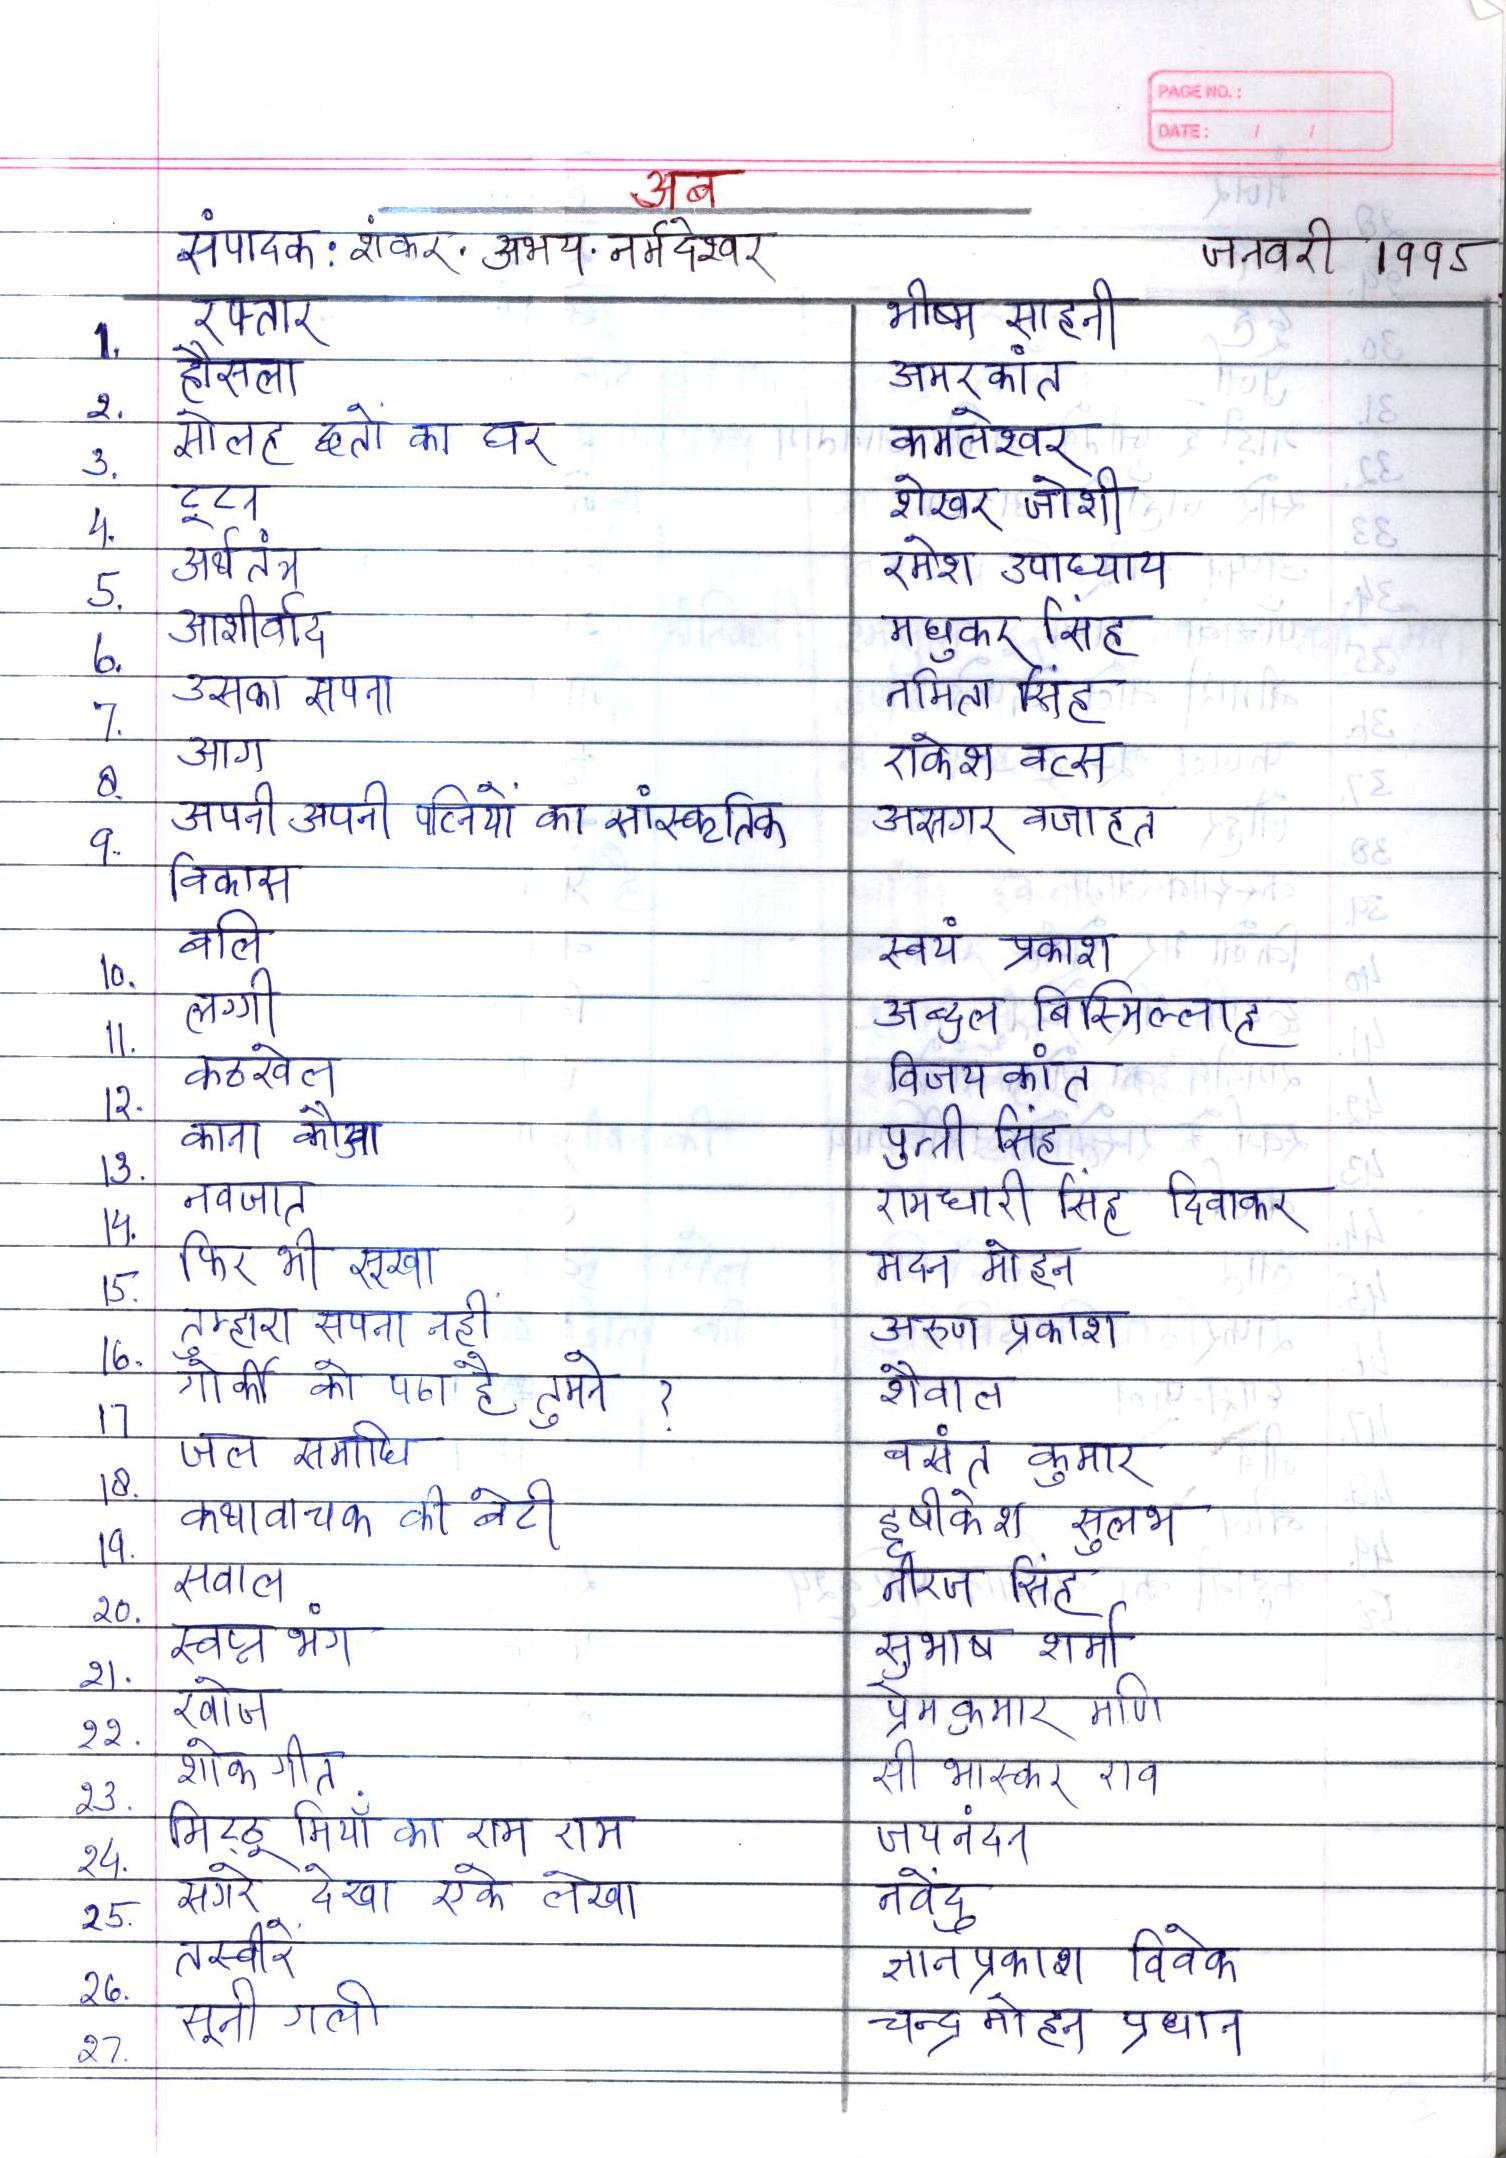 PAGE NO. :
DATE : / /
अब
संपादक : शंकर . अभय . नर्मदेश्वर जनवरी 1995
1. रफ्तार भीष्म साहनी
2. हौसला अमरकांत
3. सोलह छतों का घर कमलेश्वर
4. टूटन शेखर जोशी
5. अर्थतंत्र रमेश उपाध्याय
6. आशीर्वाद मधुकर सिंह
7. उसका सपना नमिता सिंह
8. आग राकेश वत्स
9. अपनी अपनी पत्नियों का सांस्कृतिक असगर वजाहत
विकास
10. बलि स्वयं प्रकाश
11. लग्गी अब्दुल बिस्मिल्लाह
12. कठखेल विजय कांत
13. काना कौआ पुन्नी सिंह
14. नवजात रामधारी सिंह दिवाकर
15. फिर भी सूखा मदन मोहन
16. तुम्हारा सपना नहीं अरुण प्रकाश
17 गोर्की को पढा है तुमने ? शैवाल
18. जल समाधि बसंत कुमार
19. कथावाचक की बेटी हृषीकेश सुलभ
20. सवाल नीरज सिंह
21. स्वप्न भंग सुभाष शर्मा
22. खोज प्रेमकुमार मणि
23. शोक गीत सी भास्कर राव
24. मिट्ठू मियाँ का राम राम जयनंदन
25. सगरे देखा एके लेखा नवेंदु
26. तस्वीरें ज्ञानप्रकाश विवेक
27. सूनी गली चन्द्रमोहन प्रधान